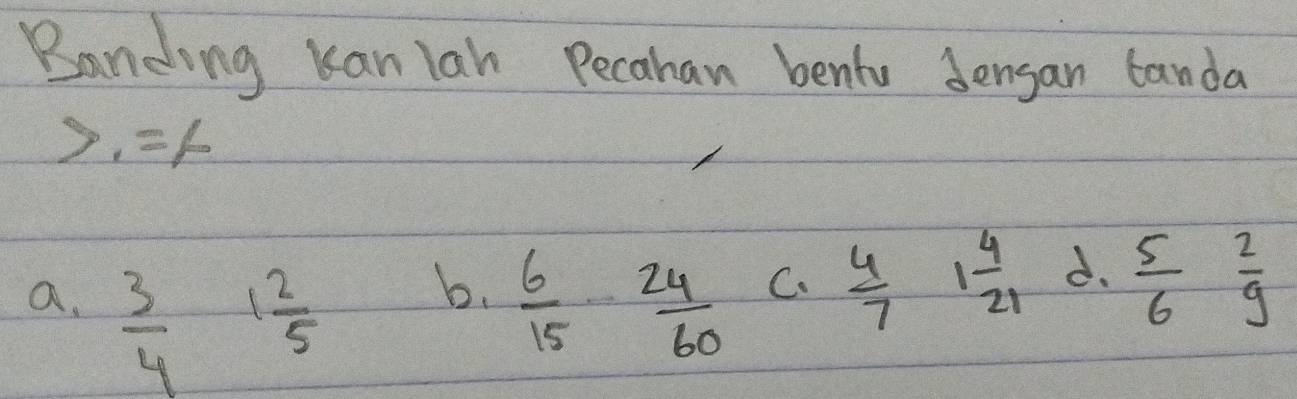 Banding kan lah Pecahan bentu dengan tanda
>, = <
a. 3/4 1 2/5 b. 6/15 24/60 c. 4/7 1 4/21 d. 5/6 2/9